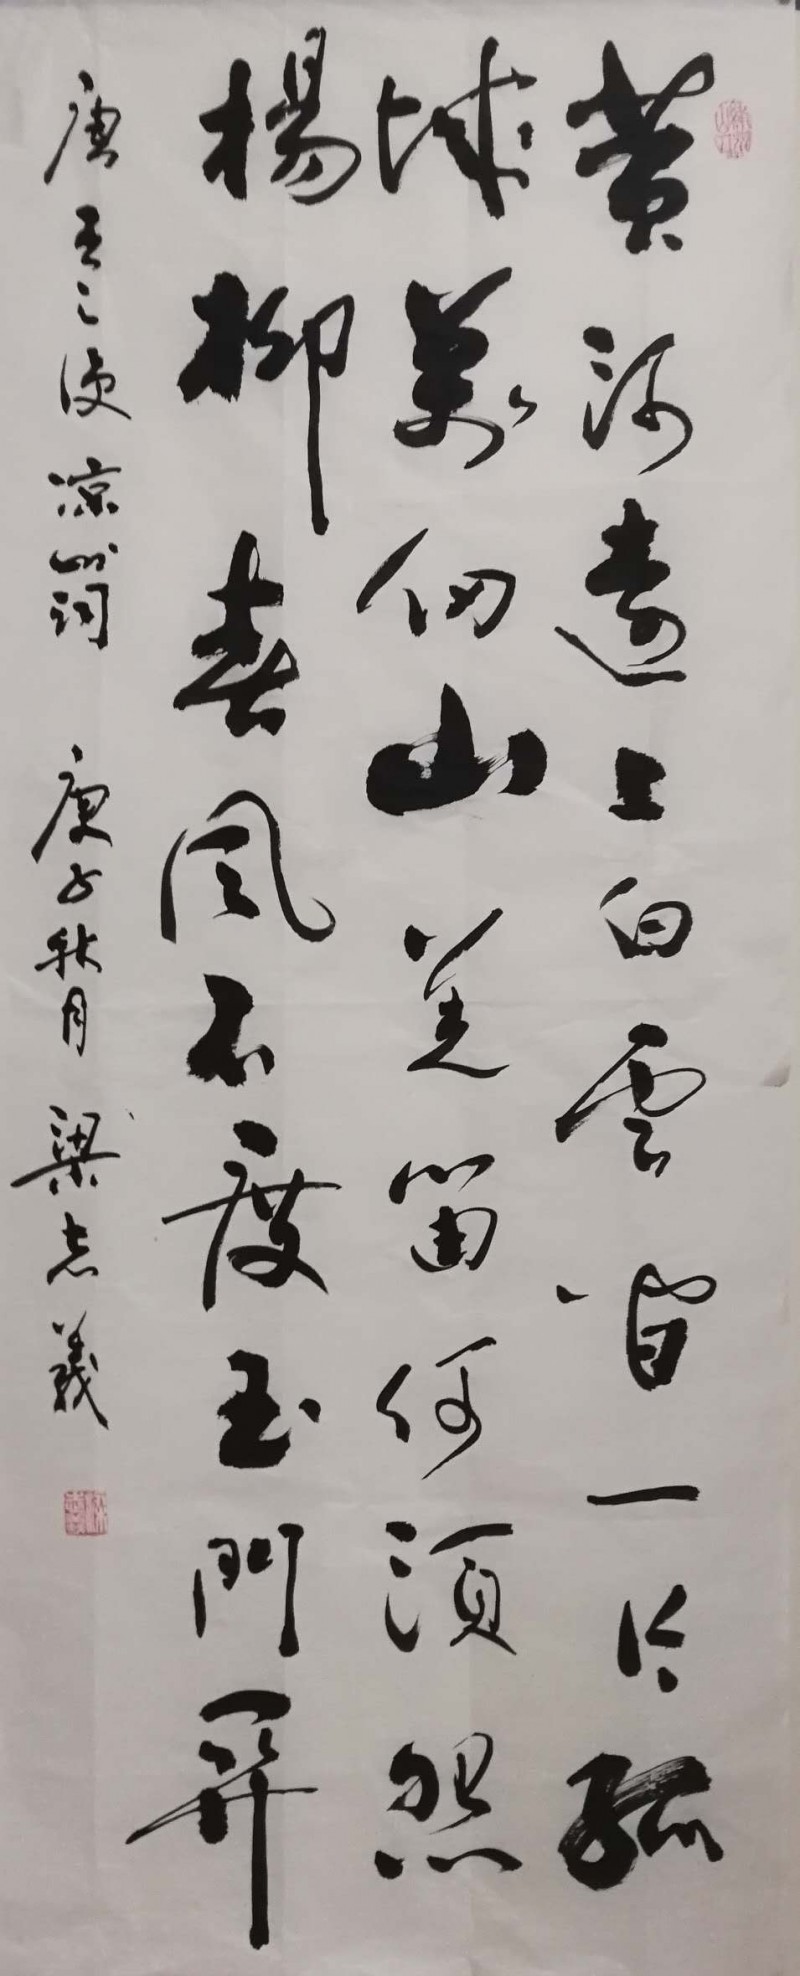 黄河遠上白雲間一片孤
城萬仞山羌笛何須怨
楊柳春風不度玉門関
唐王之渙凉州詞 庚子秋月 梁志義